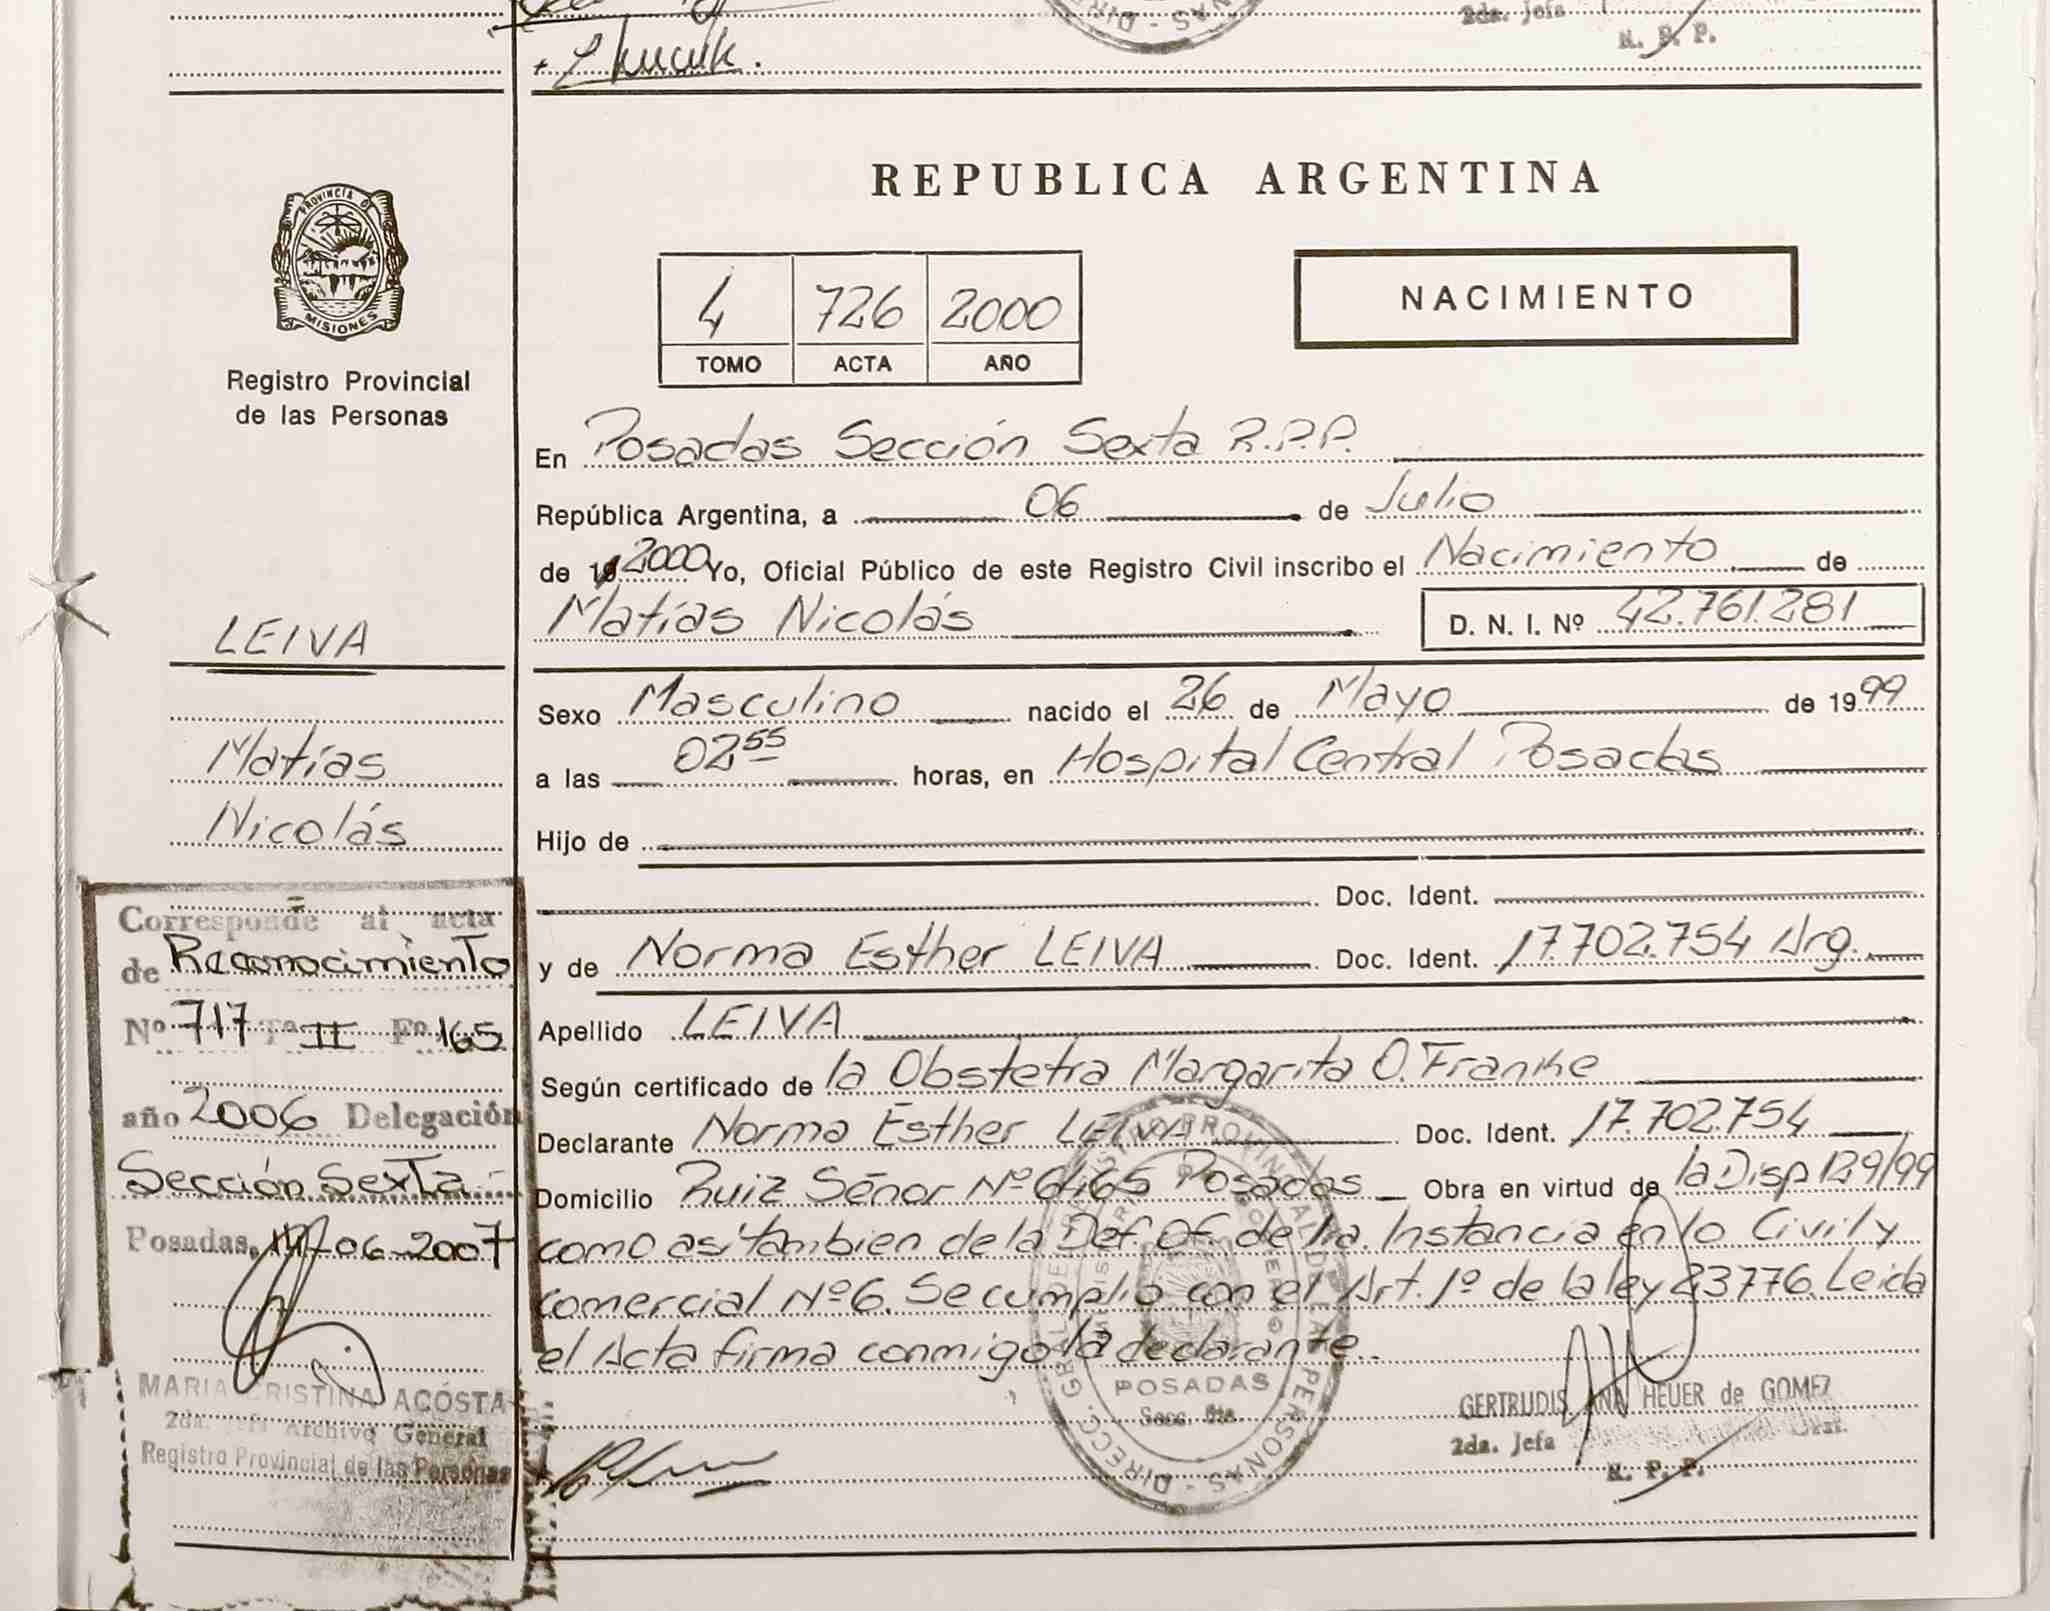 2da. Jefa
R. P. P.
REPUBLICA ARGENTINA
PROVINCIA DE
MISIONES
Registro Provincial
de las Personas
4 726 2000
TOMO ACTA AÑO
NACIMIENTO
En Posadas Sección Sexta R.P.P.
República Argentina, a 06 de Julio
de 19 2000 Yo, Oficial Público de este Registro Civil inscribo el Nacimiento de
Matías Nicolás D. N. I. Nº 42.761.281
LEIVA
Matías
Nicolás
Sexo Masculino nacido el 26 de Mayo de 1999
a las 02 55 horas, en Hospital Central Posadas
Hijo de
Doc. Ident.
y de Norma Esther LEIVA Doc. Ident. 17.702.754 Arg.
Apellido LEIVA
Según certificado de la Obstetra Margarita O. Franke
Declarante Norma Esther LEIVA Doc. Ident. 17.702.754
Domicilio Ruiz Señor Nº 6465 Posadas Obra en virtud de la Disp 129/99
como así tambien de la Def. Of. de 1ra. Instancia en lo Civil y
comercial Nº6. Se cumplio con el Art. 1º de la ley 23776. Leida
el Acta firma conmigo la declarante.
Corresponde al acta
de Reconocimiento
Nº 717 Tº II Fº 165
año 2006 Delegación
Sección Sexta
Posadas, 06-2007
MARIA CRISTINA ACOSTA
2da. Jefa Archivo General
Registro Provincial de las Personas
POSADAS
Secc. 6ta.
GERTRUDIS ANA HEUER de GOMEZ
2da. Jefa
R. P. P.